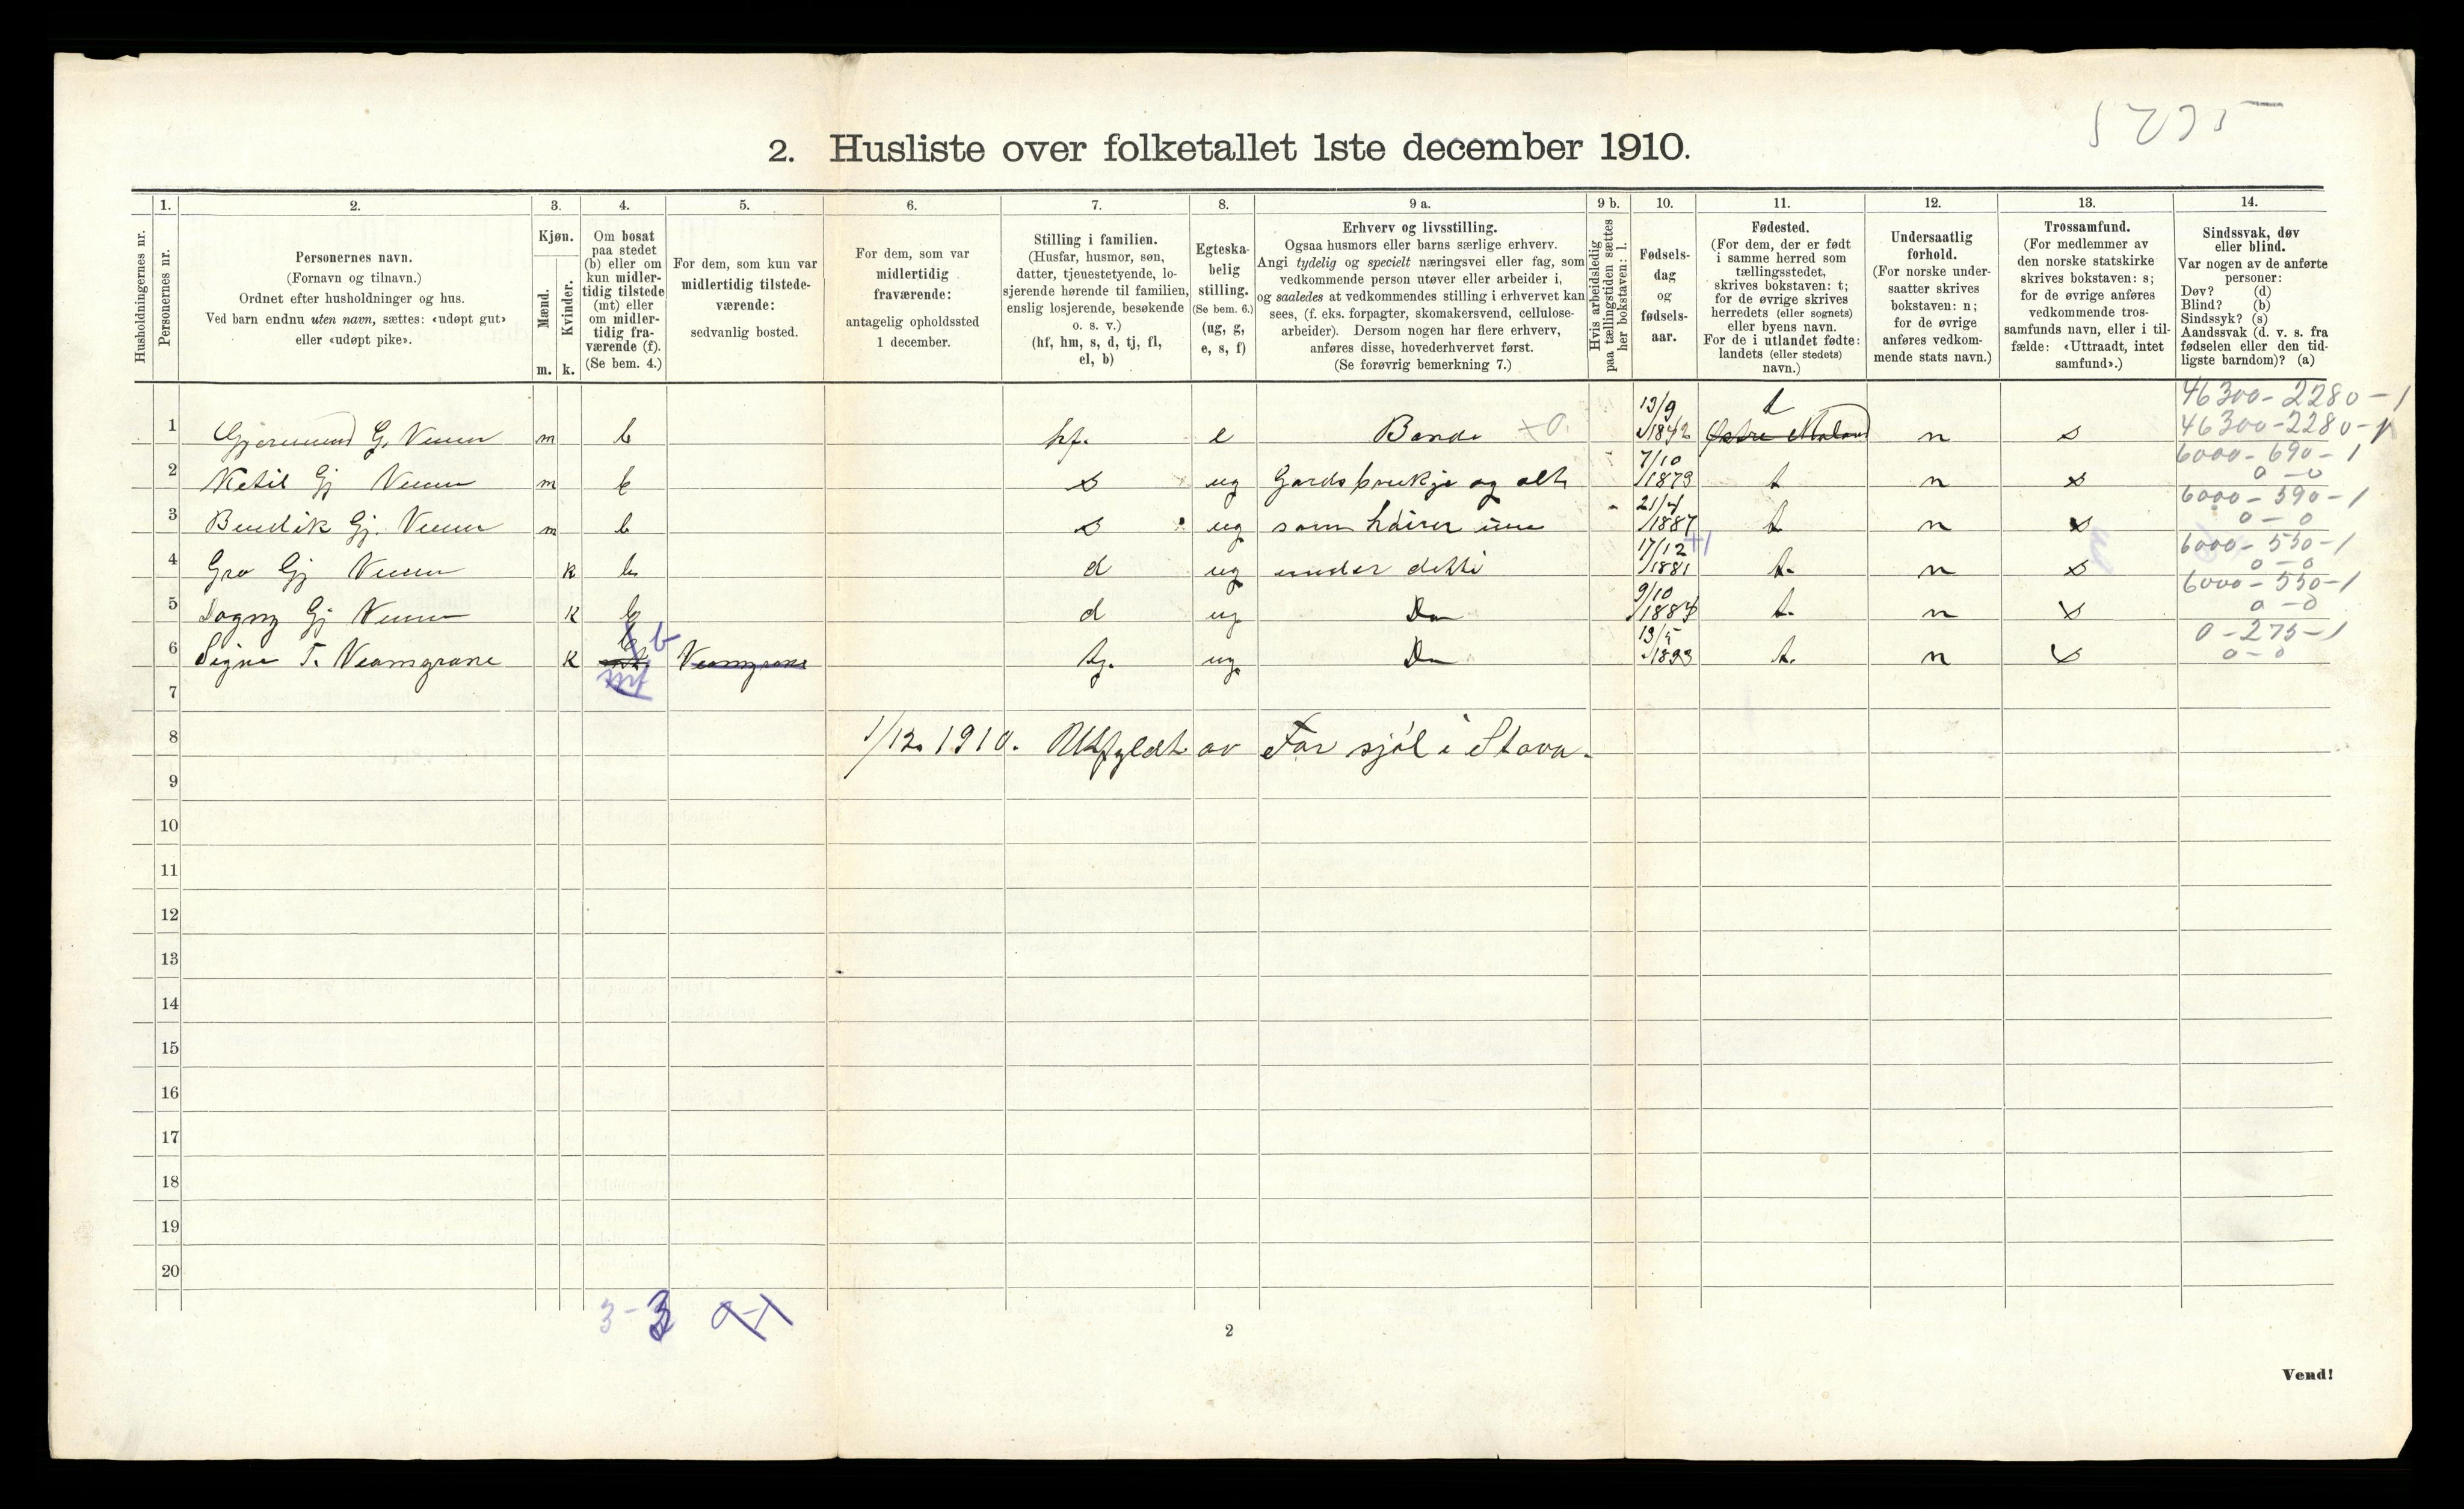 5295
2. Husliste over folketallet 1ste december 1910.
Husholdningernes nr.
1.
Personernes nr.
2.
Personernes navn.
(Fornavn og tilnavn.)
Ordnet efter husholdninger og hus.
Ved barn endnu uten navn, sættes: «udøpt gut»
eller «udøpt pike».
3.
Kjøn.
Mænd.
Kvinder.
m.
k.
4.
Om bosat
paa stedet
(b) eller om
kun midler-
tidig tilstede
(mt) eller
om midler-
tidig fra-
værende (f).
(Se bem. 4.)
5.
For dem, som kun var
midlertidig tilstede-
værende:
sedvanlig bosted.
6.
For dem, som var
midlertidig
fraværende:
antagelig opholdssted
1 december.
7.
Stilling i familien.
(Husfar, husmor, søn,
datter, tjenestetyende, lo-
sjerende hørende til familien,
enslig losjerende, besøkende
o. s. v.)
(hf, hm, s, d, tj, fl,
el, b)
8.
Egteska-
belig
stilling.
(Se bem. 6.)
(ug, g,
e, s, f)
9 a.
Erhverv og livsstilling.
Ogsaa husmors eller barns særlige erhverv.
Angi tydelig og specielt næringsvei eller fag, som
vedkommende person utøver eller arbeider i,
og saaledes at vedkommendes stilling i erhvervet kan
sees, (f. eks. forpagter, skomakersvend, cellulose-
arbeider). Dersom nogen har flere erhverv,
anføres disse, hovederhvervet først.
(Se forøvrig bemerkning 7.)
9 b.
Hvis arbeidsledig
paa tællingstiden sættes
her bokstaven: l.
10.
Fødsels-
dag
og
fødsels-
aar.
11.
Fødested.
(For dem, der er født
i samme herred som
tællingsstedet,
skrives bokstaven: t;
for de øvrige skrives
herredets (eller sognets)
eller byens navn.
For de i utlandet fødte:
landets (eller stedets)
navn.)
12.
Undersaatlig
forhold.
(For norske under-
saatter skrives
bokstaven: n;
for de øvrige
anføres vedkom-
mende stats navn.)
13.
Trossamfund.
(For medlemmer av
den norske statskirke
skrives bokstaven: s;
for de øvrige anføres
vedkommende tros-
samfunds navn, eller i til-
fælde: «Uttraadt, intet
samfund».)
14.
Sindssvak, døv
eller blind.
Var nogen av de anførte
personer:
Døv? (d)
Blind? (b)
Sindssyk? (s)
Aandssvak (d. v. s. fra
fødselen eller den tid-
ligste barndom)? (a)
46300-2280-1
1 Gjermund G. m b hf. e Bonde 13/9 1842 t n s 46300-2280-1
2 Ketil Gj m b s ug Gardsbrukje og alt 7/10 1879 t n s 6000-690-1 0-0
3 Bendik Gj. m b s ug som hører inn 21/4 1887 t n s 6000-590-1 0-0
4 Gro Gj k b d ug under dette 17/12 1881 t. n s 6000-550-1 0-0
5 Dagny Gj k b d ug. Do 9/10 1884 t. n s 6000-550-1 0-0
6 Signe T. Veamgrane k b Veamgrane tj. ug. Do 13/5 1893 t. n s 0-275-1 0-0
7
8 1/12. 1910. Utfyldt av Far sjøl i Stova.
9
10
11
12
13
14
15
16
17
18
19
20
3-3
2
Vend!